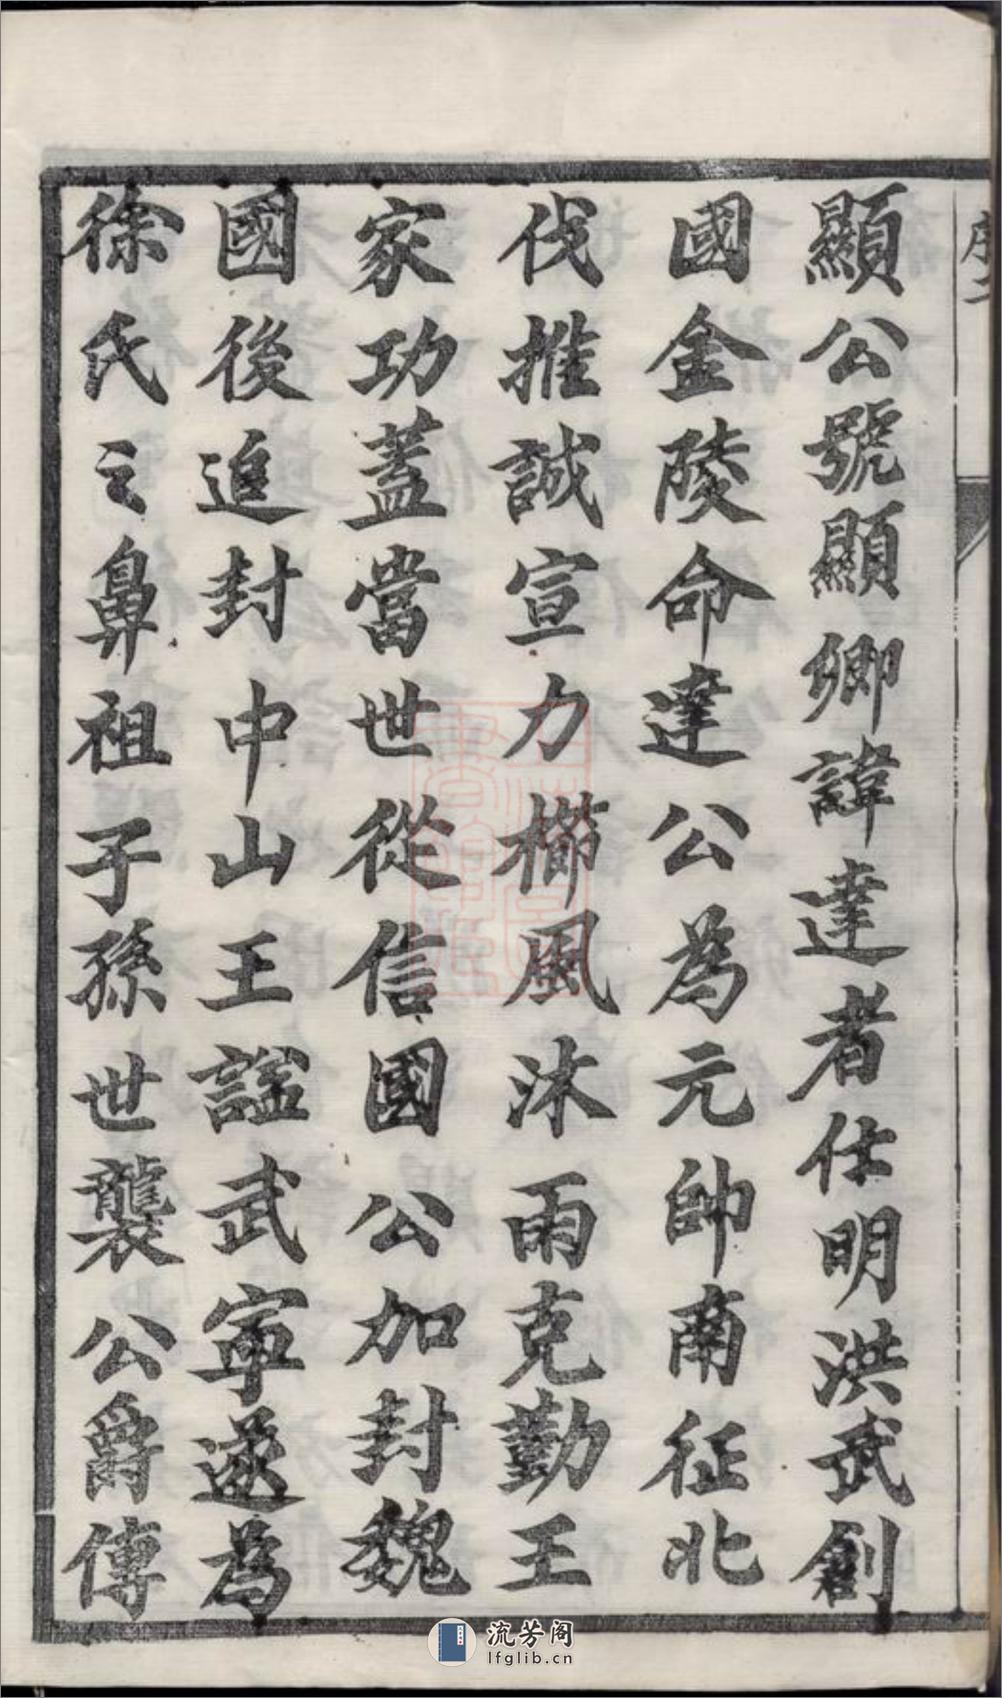 序二
顯公號顯卿諱達者仕明洪武創
國金陵命達公為元帥南征北
伐推誠宣力櫛風沐雨克勤王
家功蓋當世從信國公加封魏
國後追封中山王謚武寧遂為
徐氏之鼻祖子孫世襲公爵傳
流芳阁
lfglib.cn